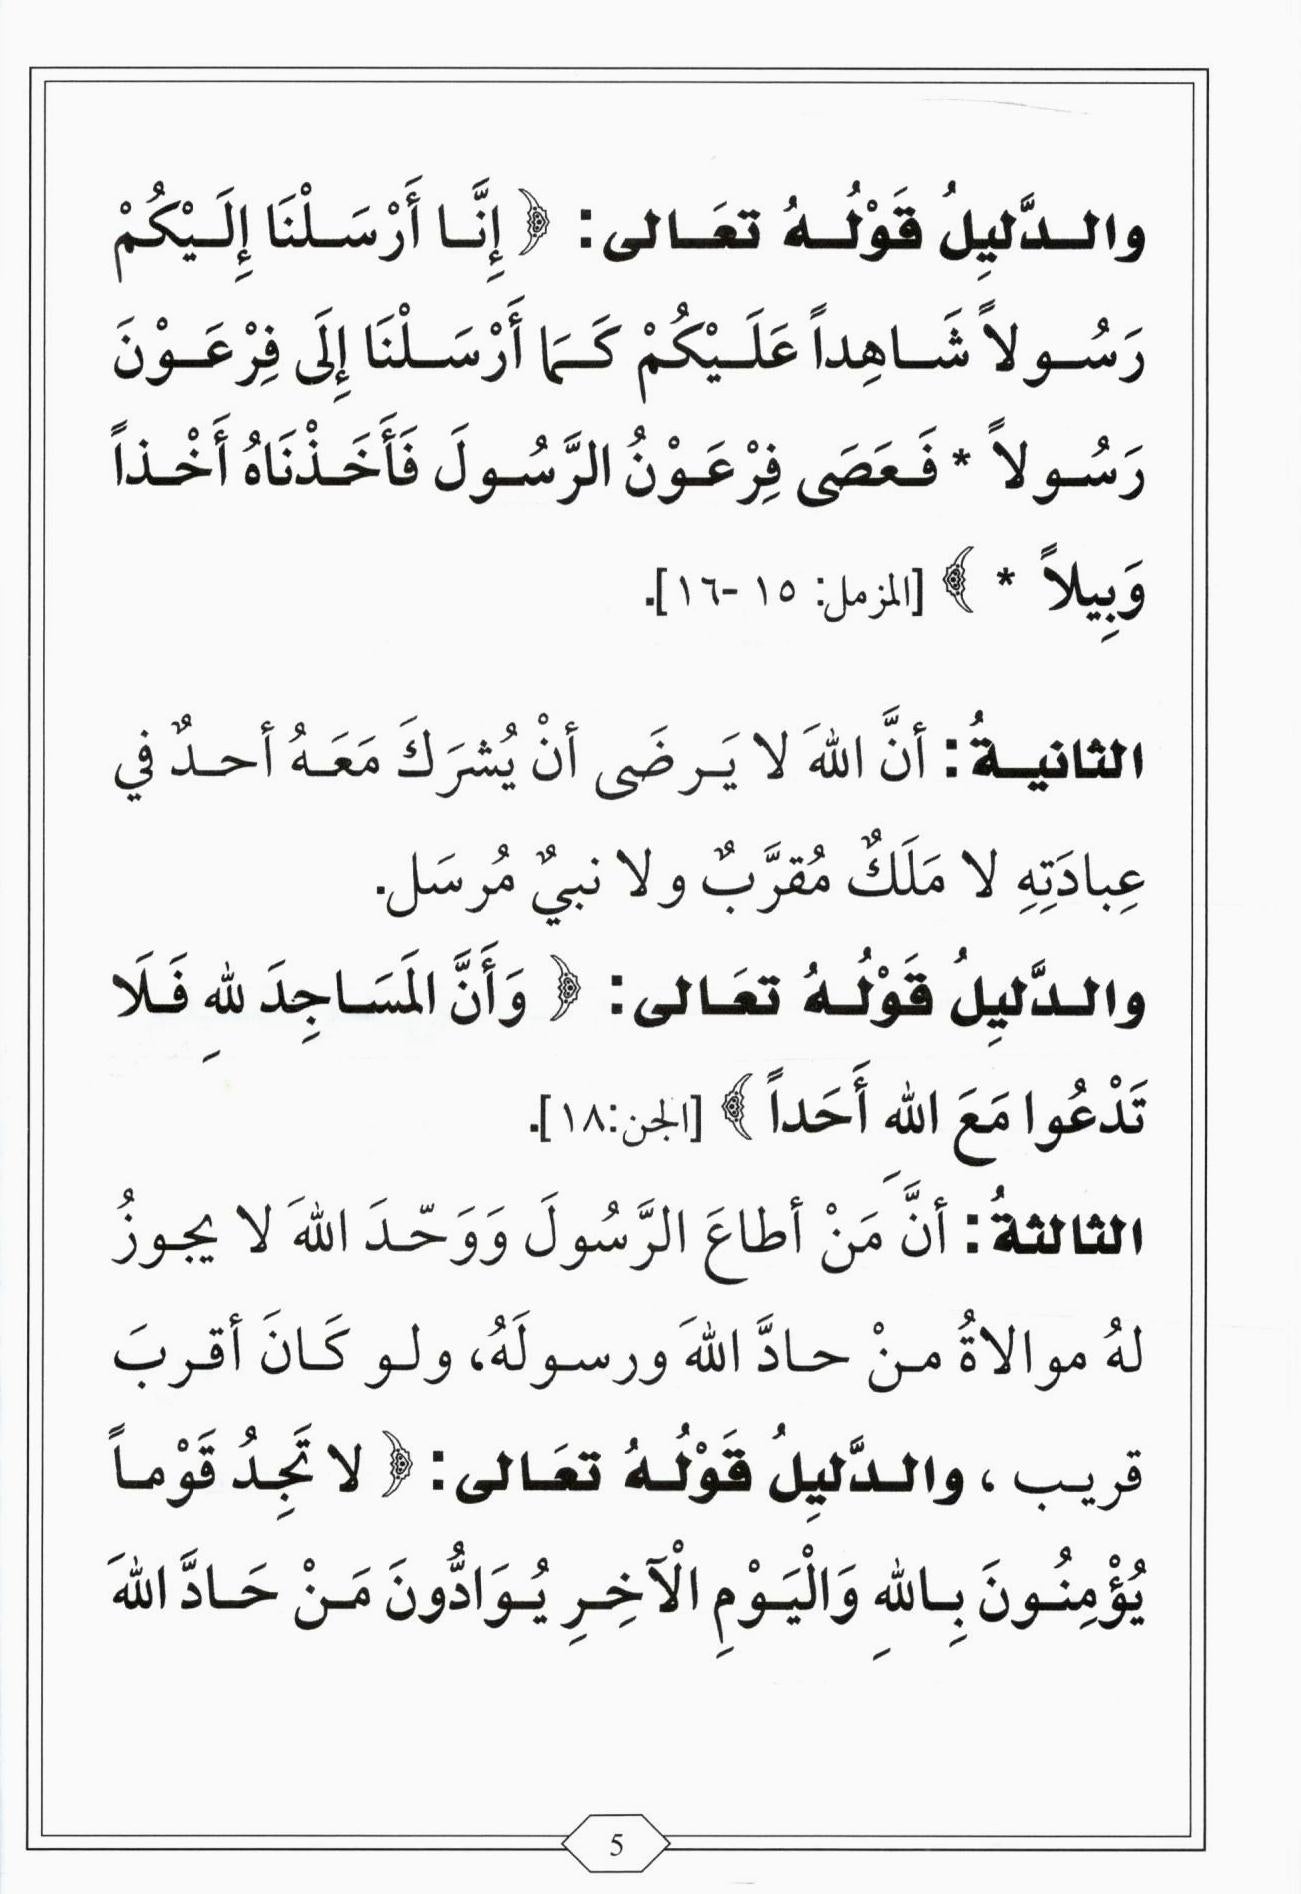 والدَّليِلُ قَوْلُهُ تعَالى: ﴿ إِنَّا أَرْسَلْنَا إِلَيْكُمْ
رَسُولاً شَاهِداً عَلَيْكُمْ كَمَا أَرْسَلْنَا إِلَى فِرْعَوْنَ
رَسُولاً * فَعَصَى فِرْعَوْنُ الرَّسُولَ فَأَخَذْنَاهُ أَخْذاً
وَبِيلاً * ﴾ [المزمل: ١٥ -١٦].
الثانيةُ: أنَّ اللهَ لا يَرضَى أنْ يُشرَكَ مَعَهُ أحدٌ في
عِبادَتِهِ لا مَلَكٌ مُقرَّبٌ ولا نبيٌ مُرسَل.
والدَّليِلُ قَوْلُهُ تعَالى: ﴿ وَأَنَّ المَسَاجِدَ للهِ فَلَا
تَدْعُوا مَعَ اللهِ أَحَداً ﴾ [الجن:١٨].
الثالثةُ: أنَّ مَنْ أطاعَ الرَّسُولَ وَوَحّدَ اللهَ لا يجوزُ
لهُ موالاةُ منْ حادَّ اللهَ ورسولَهُ، ولو كَانَ أقربَ
قريب، والدَّليِلُ قَوْلُهُ تعَالى: ﴿ لا تَجِدُ قَوْماً
يُؤْمِنُونَ بِاللهِ وَالْيَوْمِ الْآخِرِ يُوَادُّونَ مَنْ حَادَّ اللهَ
5